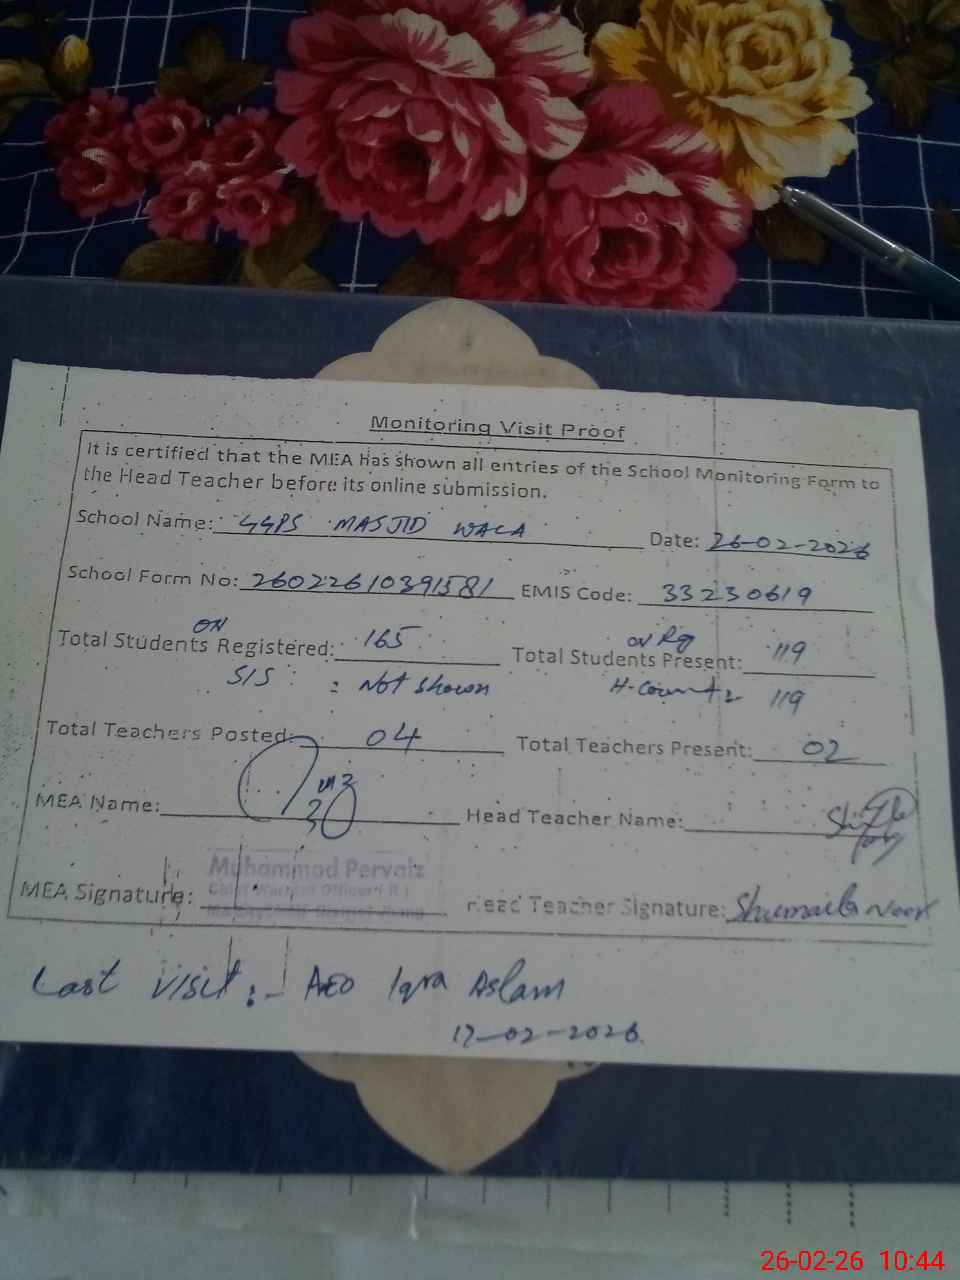 Monitoring Visit Proof
It is certified that the MEA has shown all entries of the School Monitoring Form to
the Head Teacher before its online submission.
School Name: GGPS MASJID WALA Date: 26-02-2026
School Form No: 26022610391581 EMIS Code: 33230619
ON on Rg
Total Students Registered: 165 Total Students Present: 119
SIS : Not Shown H-Count 119
Total Teachers Posted: 04 Total Teachers Present: 02
MEA Name: Head Teacher Name:
Muhammad Pervaiz
MEA Signature: Head Teacher Signature: Shumaila Noor
Last visit:- AEO Iqra Aslam
17-02-2026
26-02-26 10:44